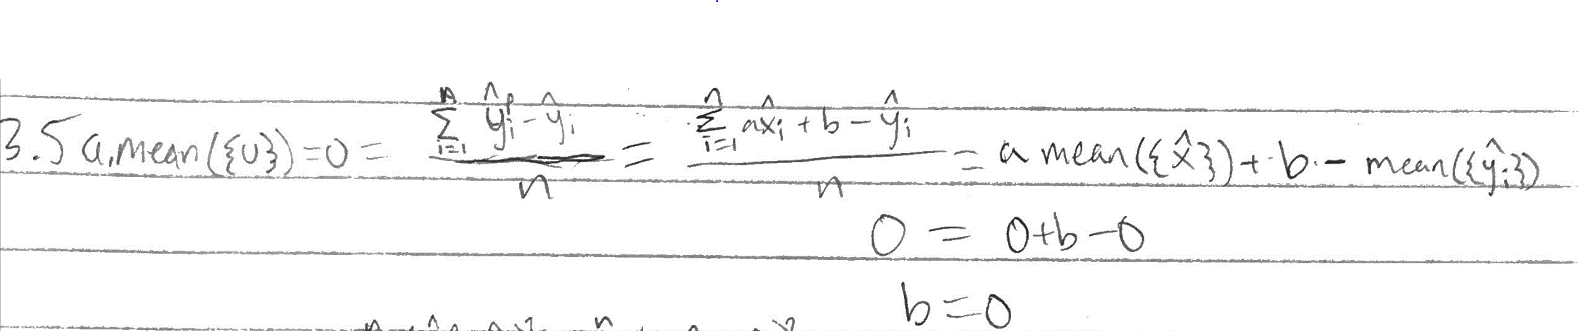 3.5 a, mean({u}) = 0 = \frac{\sum_{i=1}^{n} \hat{y}_i^p - \hat{y}_i}{n} = \frac{\sum_{i=1}^{n} a\hat{x}_i + b - \hat{y}_i}{n} = a mean({\hat{x}}) + b - mean({\hat{y}_i})
0 = 0+b-0
b=0